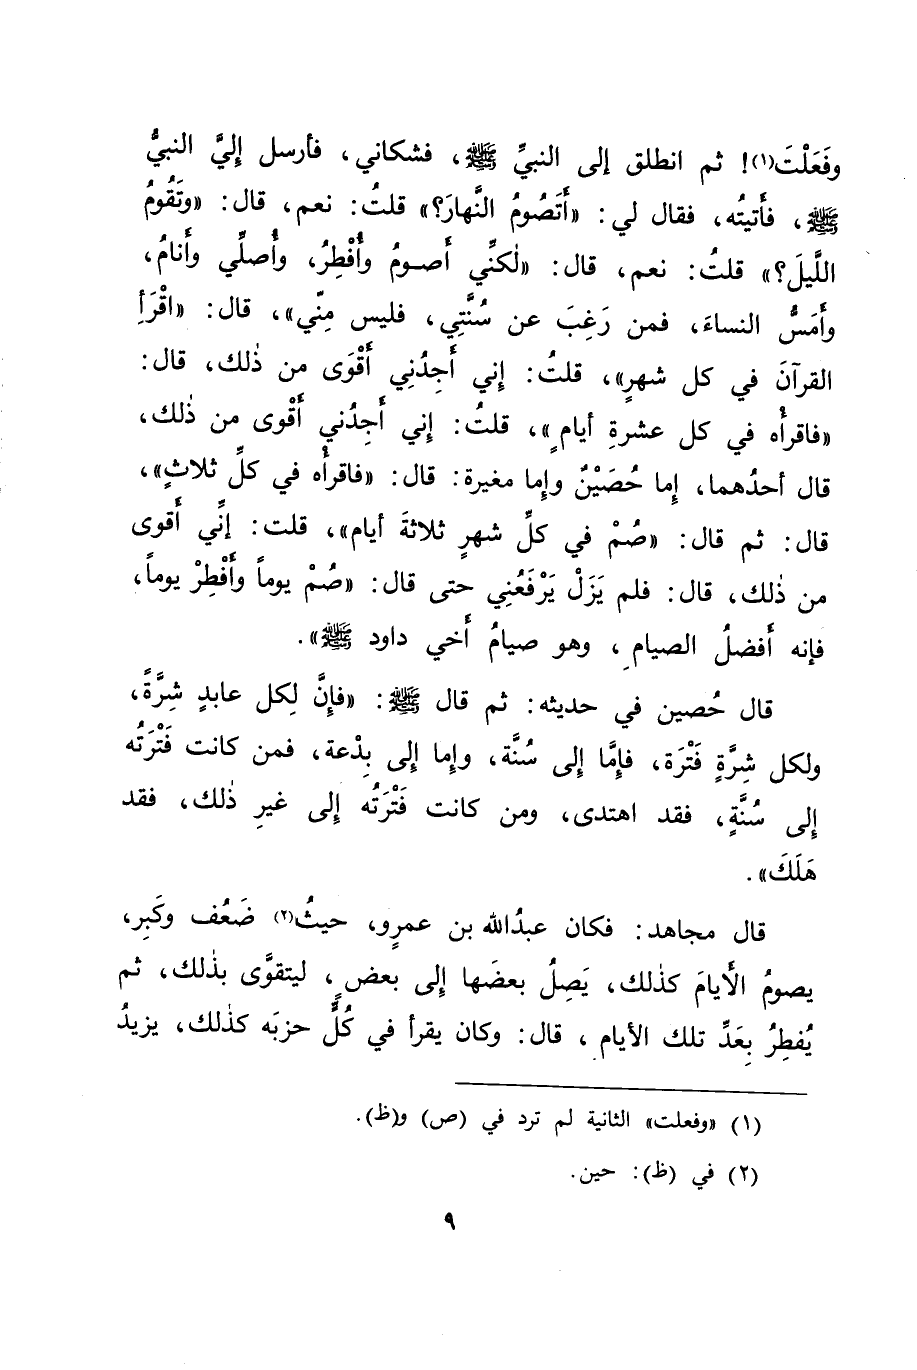 وفَعَلْتَ(١)! ثم انطلق إلى النبيِّ ﷺ، فشكاني، فأرسل إِليَّ النبيُّ
ﷺ، فأَتيتُه، فقال لي: «أَتَصُومُ النَّهارَ؟» قلتُ: نعم، قال: «وتَقُومُ
اللَّيلَ؟» قلتُ: نعم، قال: «لٰكنِّي أَصومُ وأُفْطِرُ، وأُصلِّي وأَنامُ،
وأَمَسُّ النساءَ، فمن رَغِبَ عن سُنَّتِي، فليس مِنّي»، قال: «اقْرَأِ
القرآنَ في كل شهرٍ»، قلتُ: إِني أَجِدُنِي أَقْوَى من ذٰلك، قال:
«فاقرأْه في كل عشرةِ أيامٍ»، قلتُ: إِني أَجِدُني أَقْوى من ذٰلك،
قال أحدُهما، إِما حُصَيْنٌ وإِما مغيرة: قال: «فاقرأْه في كلِّ ثلاثٍ»،
قال: ثم قال: «صُمْ في كلِّ شهرٍ ثلاثةَ أيام»، قلت: إِنِّي أَقوى
من ذٰلك، قال: فلم يَزَلْ يَرْفَعُنِي حتى قال: «صُمْ يوماً وأَفْطِرْ يوماً،
فإنه أَفضلُ الصيامِ، وهو صيامُ أَخي داود ﷺ».
قال حُصين في حديثه: ثم قال ﷺ: «فإِنَّ لِكل عابدٍ شِرَّةً،
ولكل شِرَّةٍ فَتْرَة، فإِمَّا إِلى سُنَّة، وإِما إِلى بِدْعة، فمن كانت فَتْرَتُه
إِلى سُنَّةٍ، فقد اهتدى، ومن كانت فَتْرَتُه إِلى غيرِ ذٰلك، فقد
هَلَكَ».
قال مجاهد: فكان عبدُالله بن عمرٍو، حيثُ(٢) ضَعُف وكَبِر،
يصومُ الأَيامَ كذٰلك، يَصِلُ بعضَها إِلى بعضٍ، ليتقوَّى بذٰلك، ثم
يُفطِرُ بِعَدِّ تلك الأيامِ، قال: وكان يقرأ في كُلِّ حزبَه كذٰلك، يزيدُ
(١) «وفعلت» الثانية لم ترد في (ص) و(ظ).
(٢) في (ظ): حين.
٩